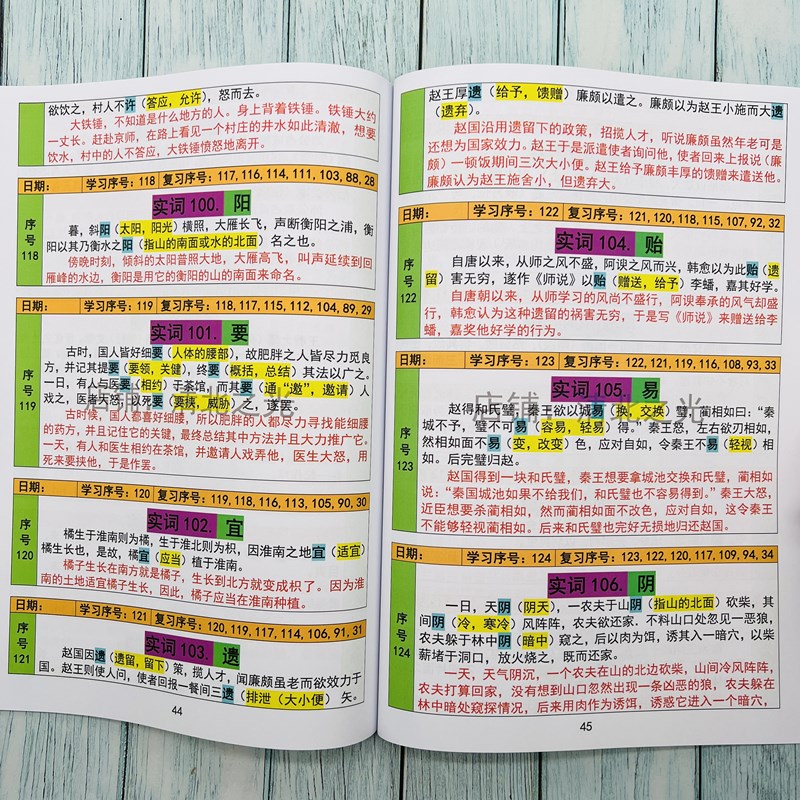 欲饮之，村人不许（答应，允许），怒而去。
大铁锤，不知道是什么地方的人。身上背着铁锤。铁锤大约
一丈长。赶赴京师，在路上看见一个村庄的井水如此清澈，想要
饮水，村中的人不答应，大铁锤愤怒地离开。
日期： 学习序号：118 复习序号：117，116，114，111，103，88，28
序号118
实词 100. 阳
暮，斜阳（太阳，阳光）横照，大雁长飞，声断衡阳之浦，衡
阳以其乃衡水之阳（指山的南面或水的北面）名之也。
傍晚时刻，倾斜的太阳普照大地，大雁高飞，叫声延续到回
雁峰的水边，衡阳是用它的衡阳的山的南面来命名。
日期： 学习序号：119 复习序号：118，117，115，112，104，89，29
序号119
实词 101. 要
古时，国人皆好细要（人体的腰部），故肥胖之人皆尽力觅良
方，并记其提要（要领，关健），终要（概括，总结）其法以广之。
一日，有人与医要（相约）于茶馆，而其要（通“邀”，邀请）人
戏之，医者大怒，以死要（要挟，威胁）之，遂罢。
古时候，国人都喜好细腰，所以肥胖的人都尽力寻找能细腰
的药方，并且记住它的关键，最终总结其中方法并且大力推广它。
一天，有人和医生相约在茶馆，并邀请人戏弄他，医生大怒，用
死来要挟他，于是作罢。
日期： 学习序号：120 复习序号：119，118，116，113，105，90，30
序号120
实词 102. 宜
橘生于淮南则为橘，生于淮北则为枳，因淮南之地宜（适宜）
橘生长也，是故，橘宜（应当）植于淮南。
橘子生长在南方就是橘子，生长到北方就变成枳了。因为淮
南的土地适宜橘子生长，因此，橘子应当在淮南种植。
日期： 学习序号：121 复习序号：120，119，117，114，106，91，31
序号121
实词 103. 遗
赵国因遗（遗留，留下）策，揽人才，闻廉颇虽老而欲效力于
国。赵王则使人问，使者回报一餐间三遗（排泄（大小便）矢。
44
赵王厚遗（给予，馈赠）廉颇以遣之。廉颇以为赵王小施而大遗
（遗弃）。
赵国沿用遗留下的政策，招揽人才，听说廉颇虽然年老可是
还想为国家效力。赵王于是派遣使者询问他，使者回来上报说（廉
颇）一顿饭期间三次大小便。赵王给予廉颇丰厚的馈赠来遣送他。
廉颇认为赵王施舍小，但遗弃大。
日期： 学习序号：122 复习序号：121，120，118，115，107，92，32
序号122
实词 104. 贻
自唐以来，从师之风不盛，阿谀之风而兴，韩愈以为此贻（遗
留）害无穷，遂作《师说》以贻（赠送，给予）李蟠，嘉其好学。
自唐朝以来，从师学习的风尚不盛行，阿谀奉承的风气却盛
行，韩愈认为这种遗留的祸害无穷，于是写《师说》来赠送给李
蟠，嘉奖他好学的行为。
日期： 学习序号：123 复习序号：122，121，119，116，108，93，33
序号123
实词 105. 易
赵得和氏璧，秦王欲以城易（换，交换）璧，蔺相如曰：“秦
城不予，璧不可易（容易，轻易）得。”秦王怒，左右欲刃相如，
然相如面不易（变，改变）色，应对自如，令秦王不易（轻视）相
如。后完璧归赵。
赵国得到一块和氏璧，秦王想要拿城池交换和氏璧，蔺相如
说：“秦国城池如果不给我们，和氏璧也不容易得到。”秦王大怒，
近臣想要杀蔺相如，然而蔺相如面不改色，应对自如，这令秦王
不能够轻视蔺相如。后来和氏璧也完好无损地归还赵国。
日期： 学习序号：124 复习序号：123，122，120，117，109，94，34
序号124
实词 106. 阴
一日，天阴（阴天），一农夫于山阴（指山的北面）砍柴，其
间阴（冷，寒冷）风阵阵，农夫欲还家．不料山口处忽见一恶狼，
农夫躲于林中阴（暗中）窥之，后以肉为饵，诱其入一暗穴，以柴
薪堵于洞口，放火烧之，既而还家。
一天，天气阴沉，一个农夫在山的北边砍柴，山间冷风阵阵，
农夫打算回家，没有想到山口忽然出现一条凶恶的狼，农夫躲在
林中暗处窥探情况，后来用肉作为诱饵，诱惑它进入一个暗穴，
45